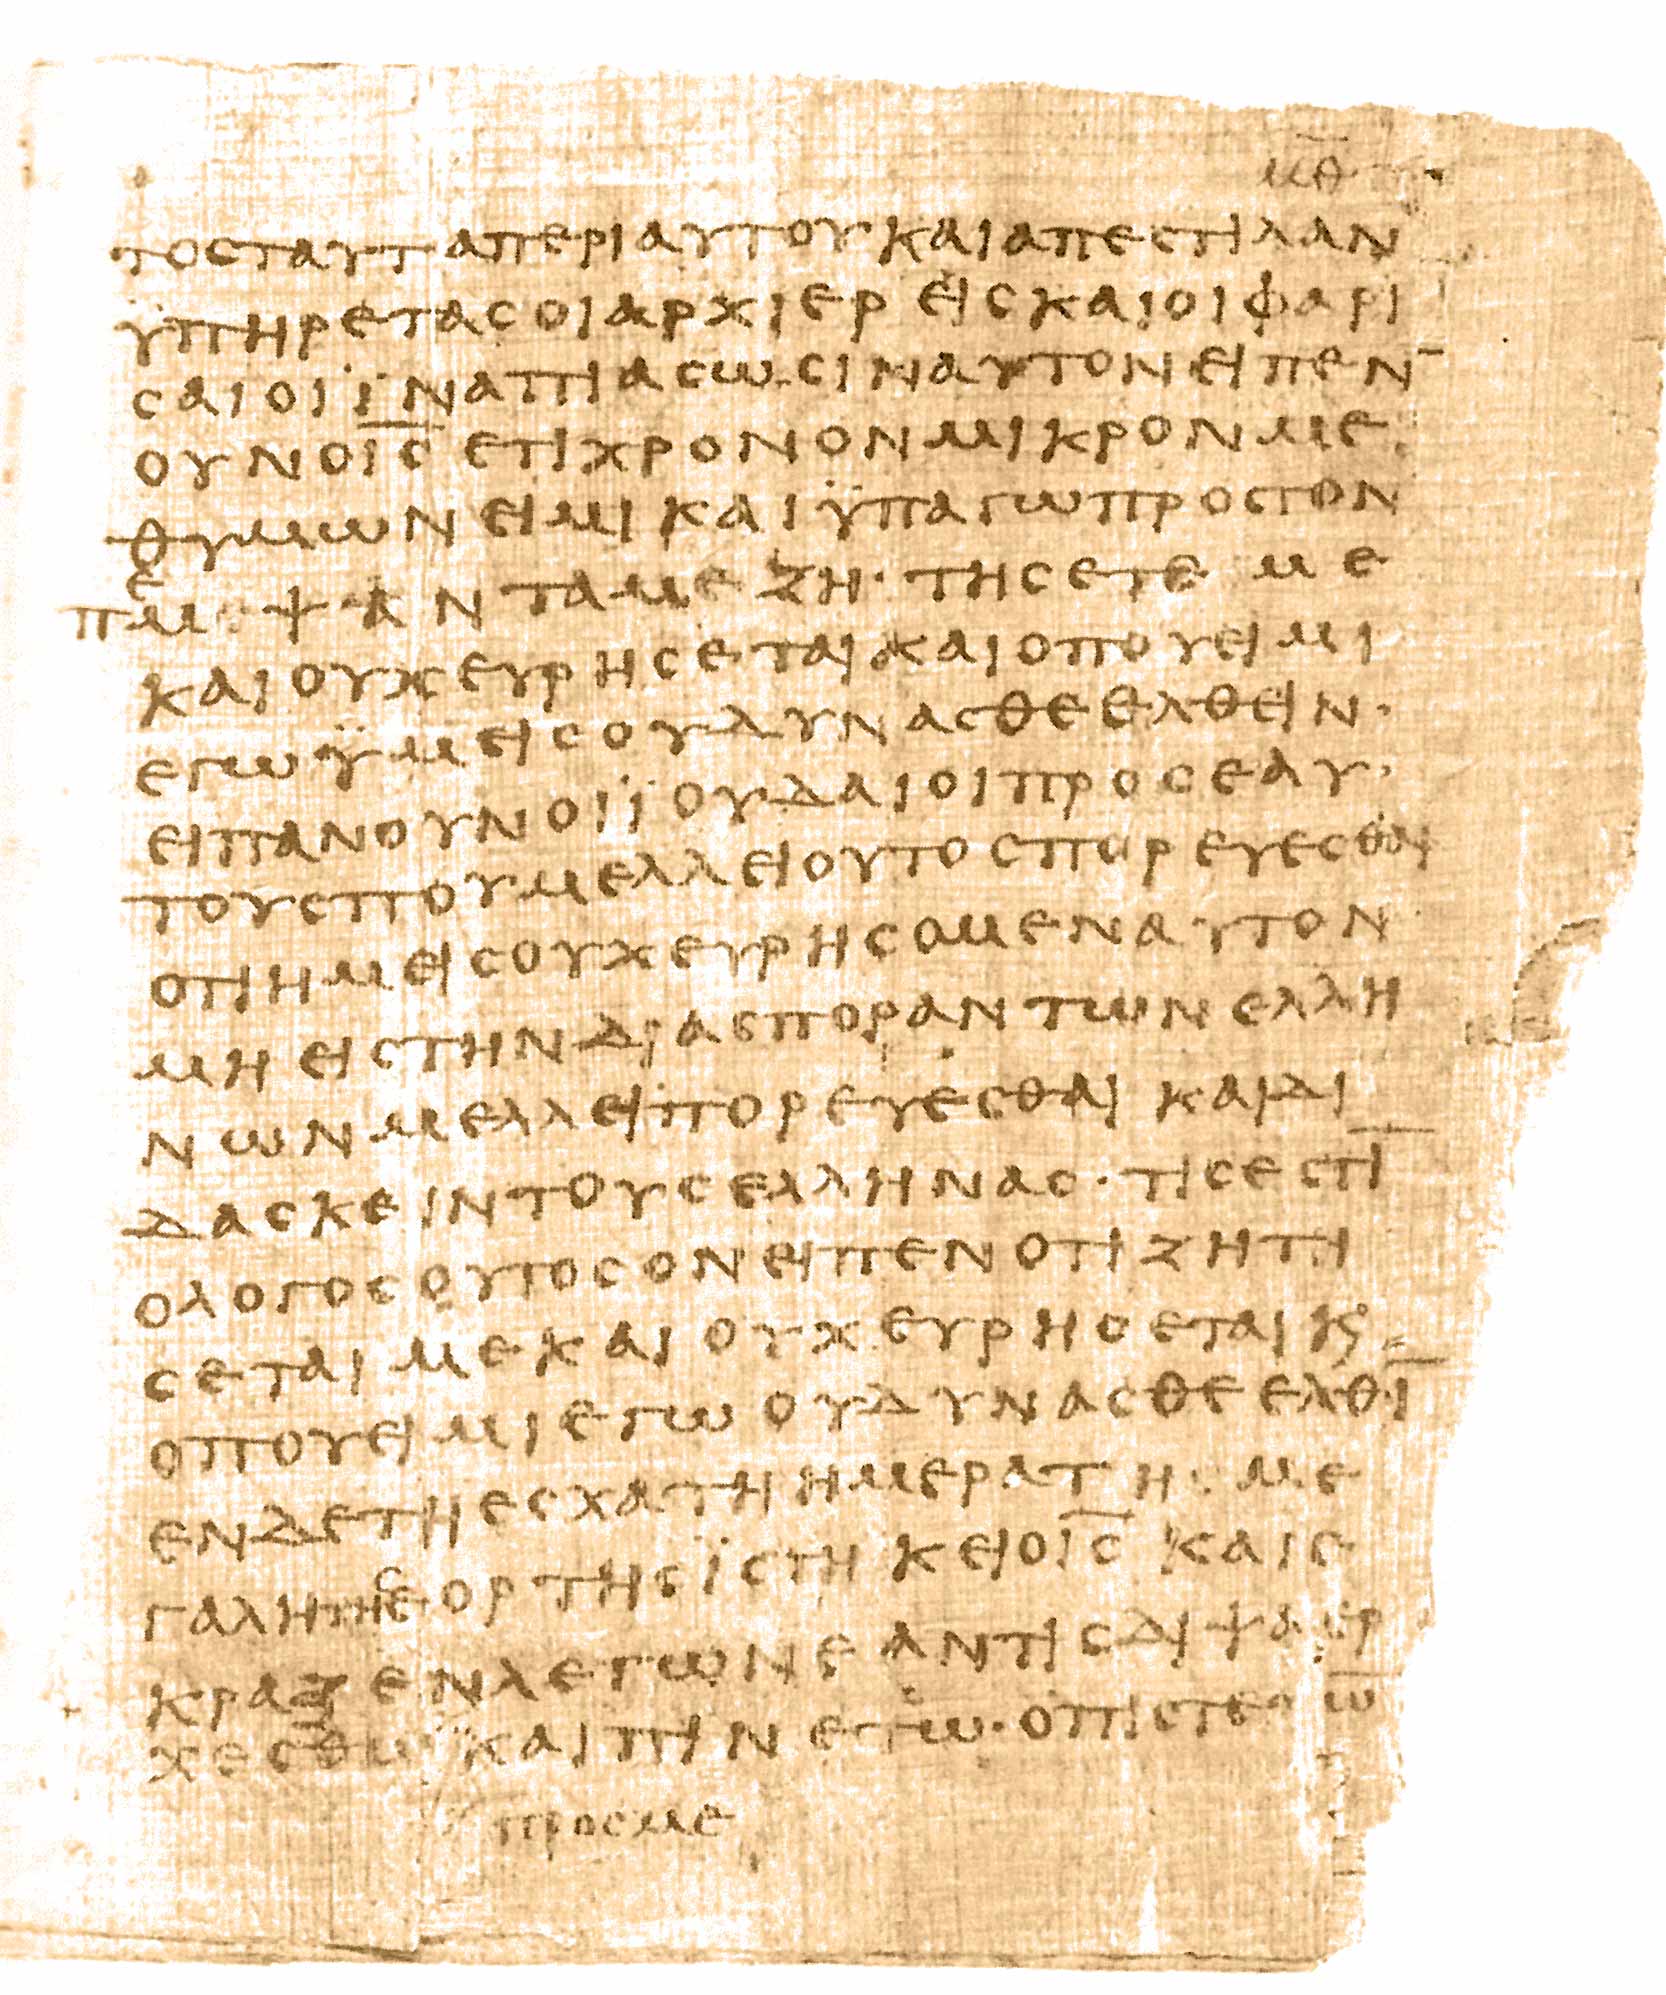 μ̅θ̅
τοσταυταπεριαυτουκαιαπεστιλαν
ϋπηρετασοιαρχιερειςκαιοιφαρι
σαιοιϊναπιασωσιναυτονειπεν
ουνοι̅ς̅ετιχρονονμικρονμε
θυμωνειμικαιϋπαγωπροστον
πεμψανταμεζητησετεμε
καιουχευρησεταικαιοπουειμι
εγωϋμεισουδυνασθεελθειν·
ειπανουνοιϊουδαιοιπροσεαυ
τουσπουμελλειουτοσπορευεσθαι
οτιημεισουχευρησομεναυτον
μηειστηνδιασπορανтωνελλη
νωνμελλειπορευεσθαικαιδι
δασκειντουσελληνασ·τισεστι̅
ολογοσουτοσονειπενοτιζητη
σεταιμεκαιουχευρησεταικ
οπουειμιεγωουδυνασθεελθι̅
ενδετηεσχατηημερατημε
γαλητησεορτησϊστηκειοι̅ς̅καιε
κραξενλεγωνεαντισδιψαερ
χεσθωκαιπινετω·οπιστευω̅
προσμε